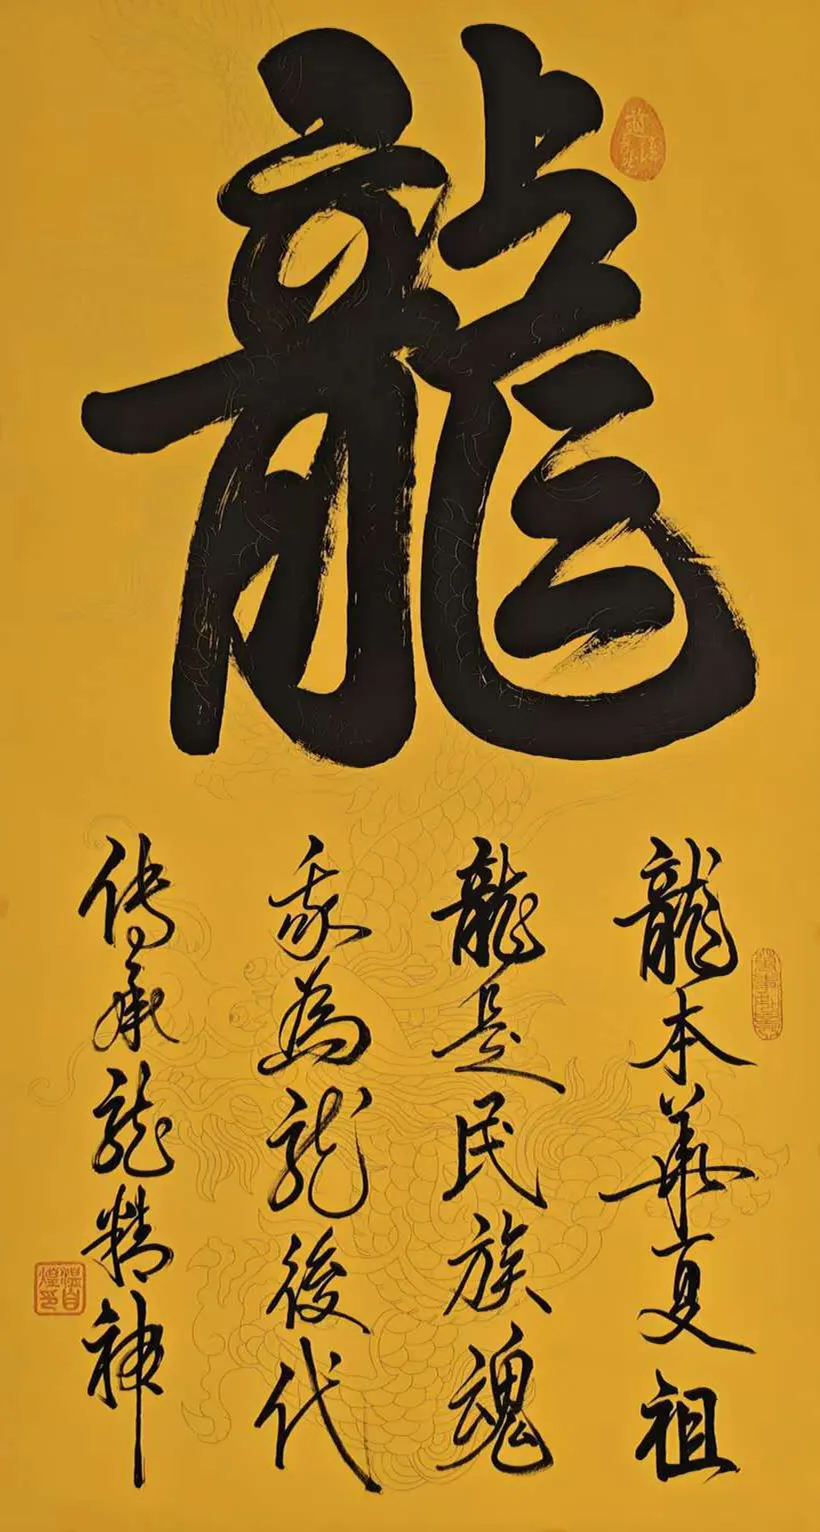 龍
龍本華夏祖
龍是民族魂
我為龍後代
传承龍精神